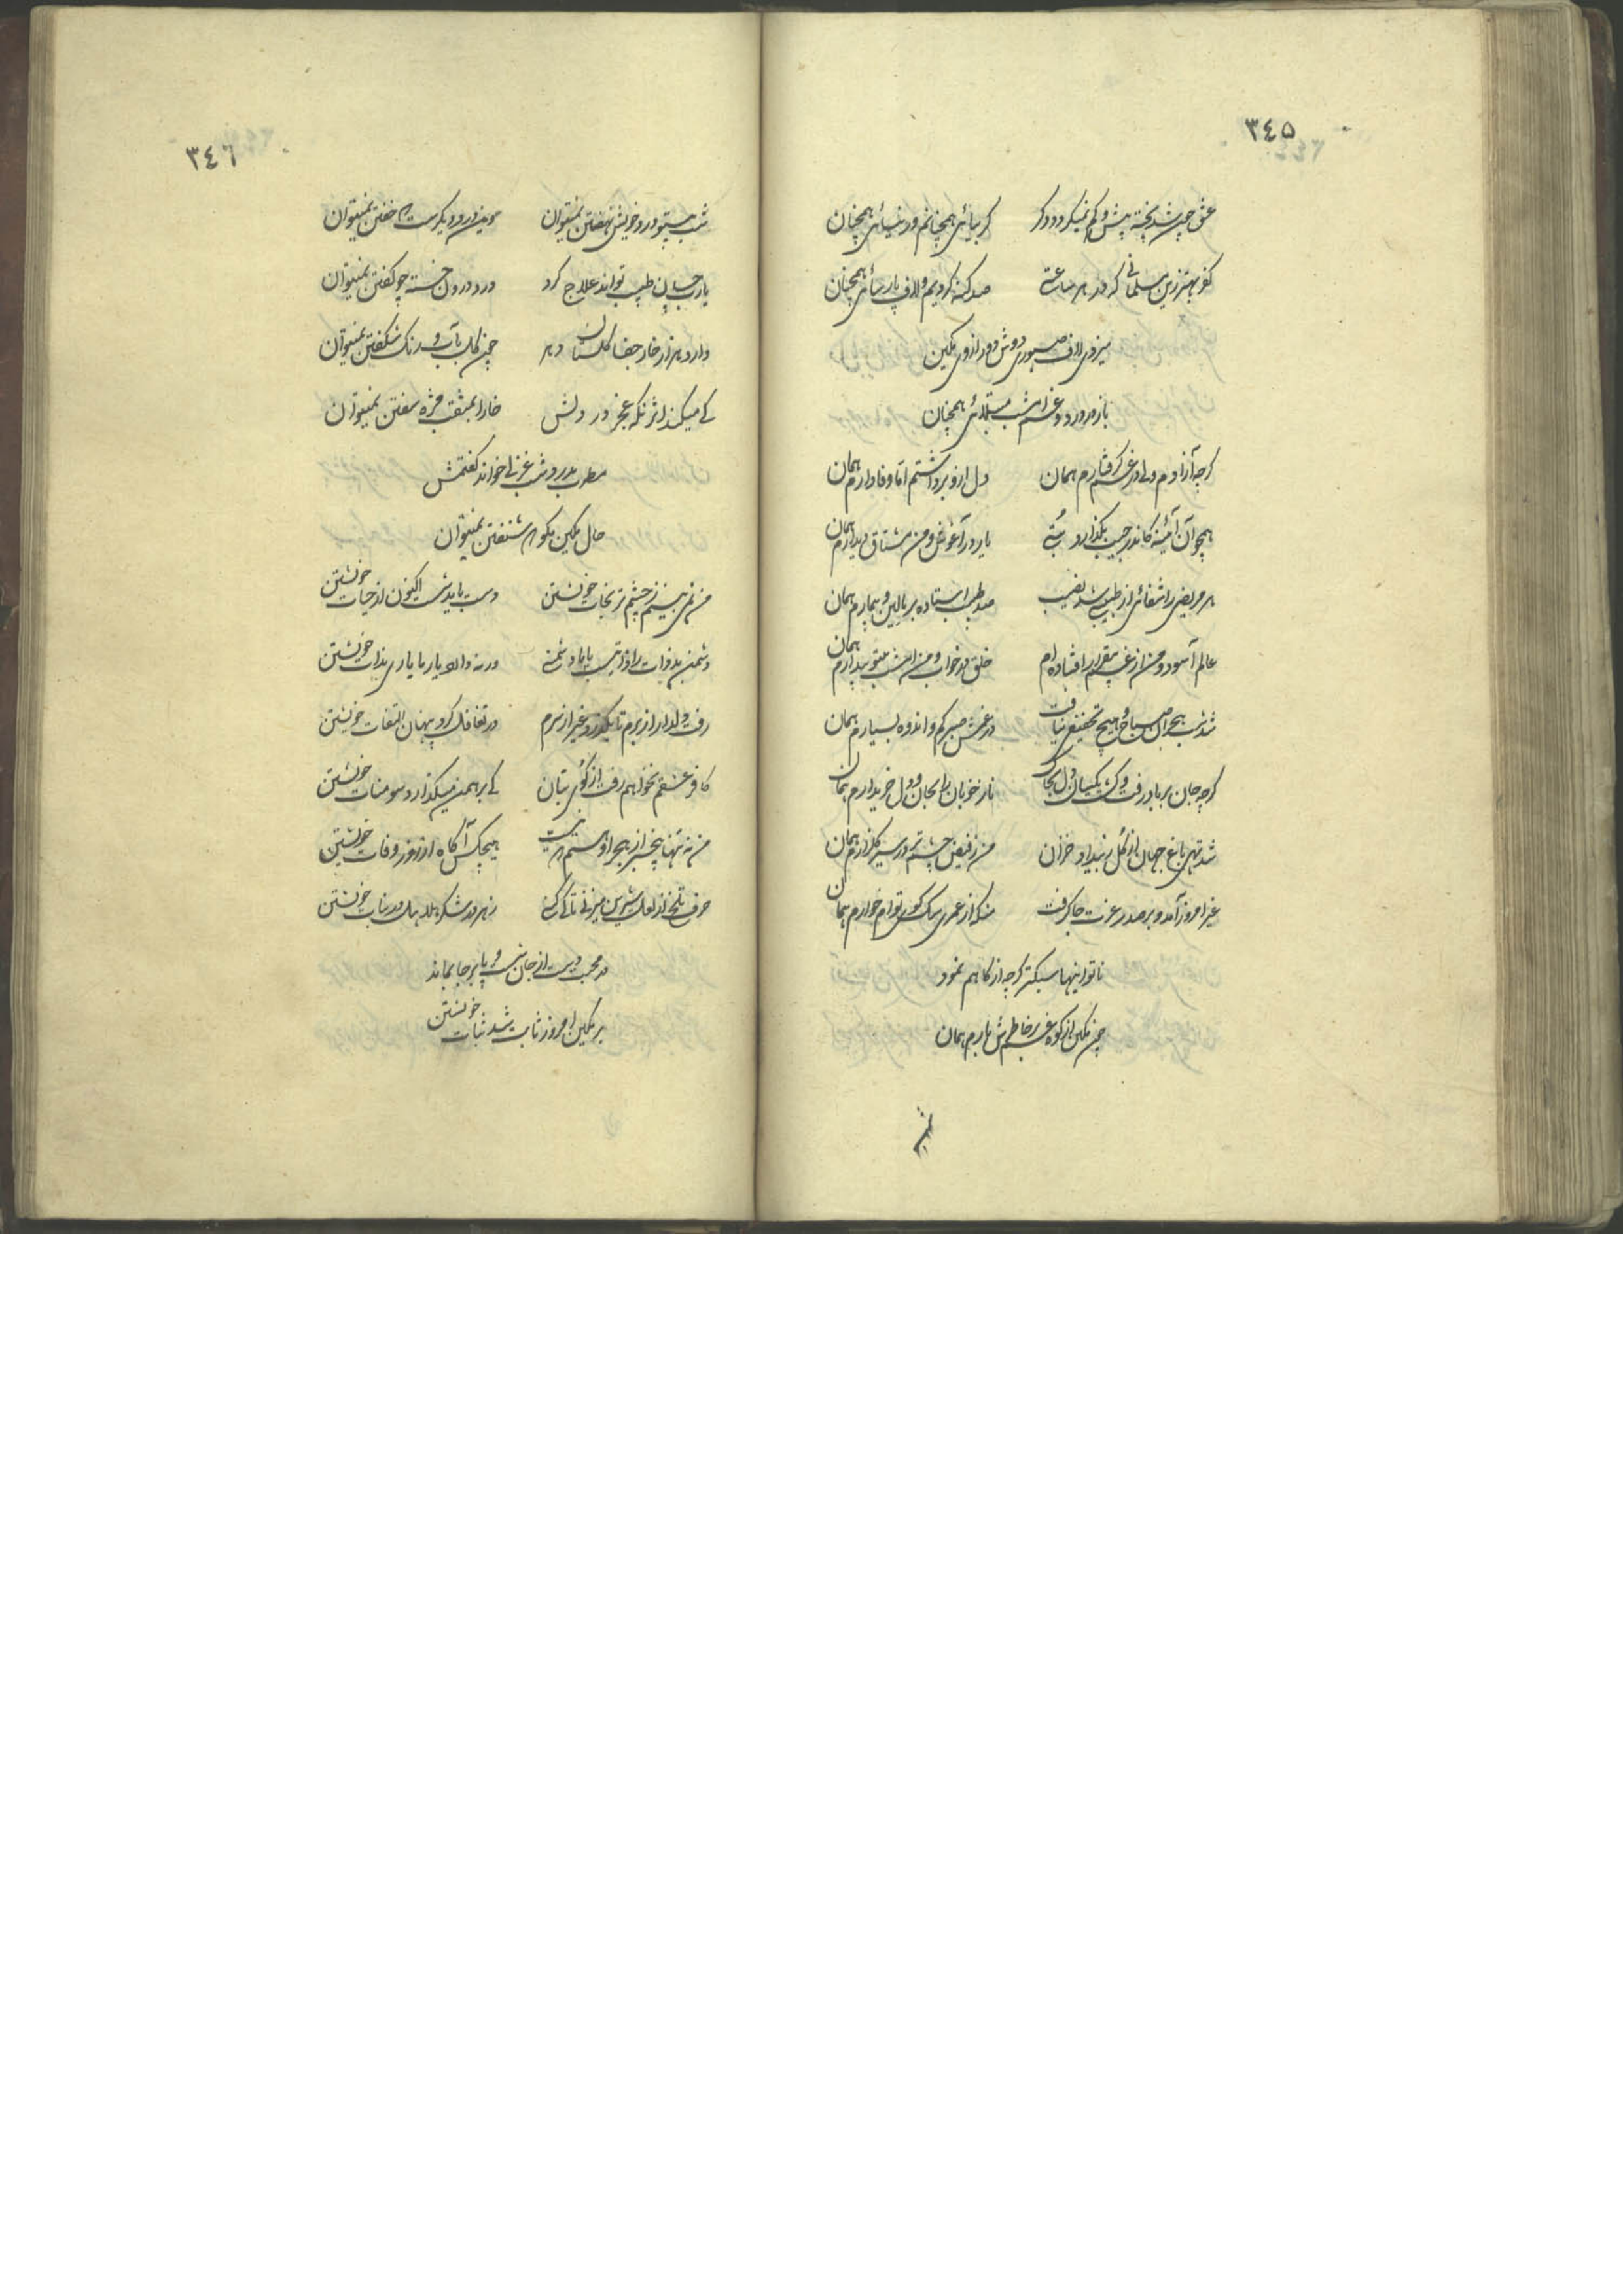 ٣٤٥
عشق چون شد پخته پیش و کم نمیکردد دکر کر بیائی همچنانم ور نیائی همچنان
کفر بهتر زین مسلمانی که در هر ساعتی صد کنه کردیم و لاف پارسائی همچنان
میزدی لاف صبوری دوش دور از وی مکین
باز در درد و غم امشب مبتلائی همچنان
کرچه آزادم ولی در غم کرفتارم همان دل ازو برداشتم اما وفادارم همان
همچو آن آئینه کاندر جیب بکذارد بتی یار در آغوش و من مشتاق دیدارم همان
هر مریضی را شفائی از طبیب شد نصیب صد طبیب استاده بر بالین و بیمارم همان
عالم آسود و من از غم بیقرار افتاده ام خلق در خواب و من امشب بیتو بیدارم همان
شد شب هجران صباح و هیچ تخفیفی نیافت در غمش صبر کم و اندوه بسیارم همان
کرچه جان بر باد رفت و دل بخاک ناز خوبان را بجان و دل خریدارم همان
شد تهی باغ جهان از کل ز بیداد خزان من ز فیض چشم تر در سیر کلزارم همان
غیر امروز آمد و بر صدر عزت جا کرفت منکه از عمری سک کوی توام خوارم همان
ناتوانیها سبکتر کرچه از کاهم نمود
چون مکین از کوه غم بر خاطرش بارم همان
٣٤٦
شب بیتو درد خویش نهفتن نمیتوان وین درد دیکرست که خفتن نمیتوان
یارب چسان طبیب تواند علاج کرد درد درون خسته چو کفتن نمیتوان
دارد هزار خار جفا کلستان دهر چون کل بآب و رنک شکفتن نمیتوان
کی میکند اثر نکه عجز در دلش خارا بمثقب مژه سفتن نمیتوان
مطرب بدرد شب غزلی خواند کفتمش
حال مکین مکو که شنفتن نمیتوان
من نمی بینم ز چشم تر نجات خویشتن دست باید شست اکنون از حیات خویشتن
دشمن بدذات را ذاتیست با ما دشمنی ورنه دادیم یار با یاری بذات خویشتن
رفت دلدار از برم تا بکذرد غیر از سرم در تغافل کرد پنهان التفات خویشتن
کافر عشقم نخواهم رفت از کوی بتان کی برهمن میکذارد سومنات خویشتن
من نه تنها بیخبر از هجر او هستم که نیست هیچکس آکاه از روز وفات خویشتن
حرف تلخ از لعل شیرین میزنی تا کی کسی زهر در شکر هلاهل در نبات خویشتن
در محبت دست از جان شست و پا برجا بماند
بر مکین امروز ثابت شد ثبات خویشتن